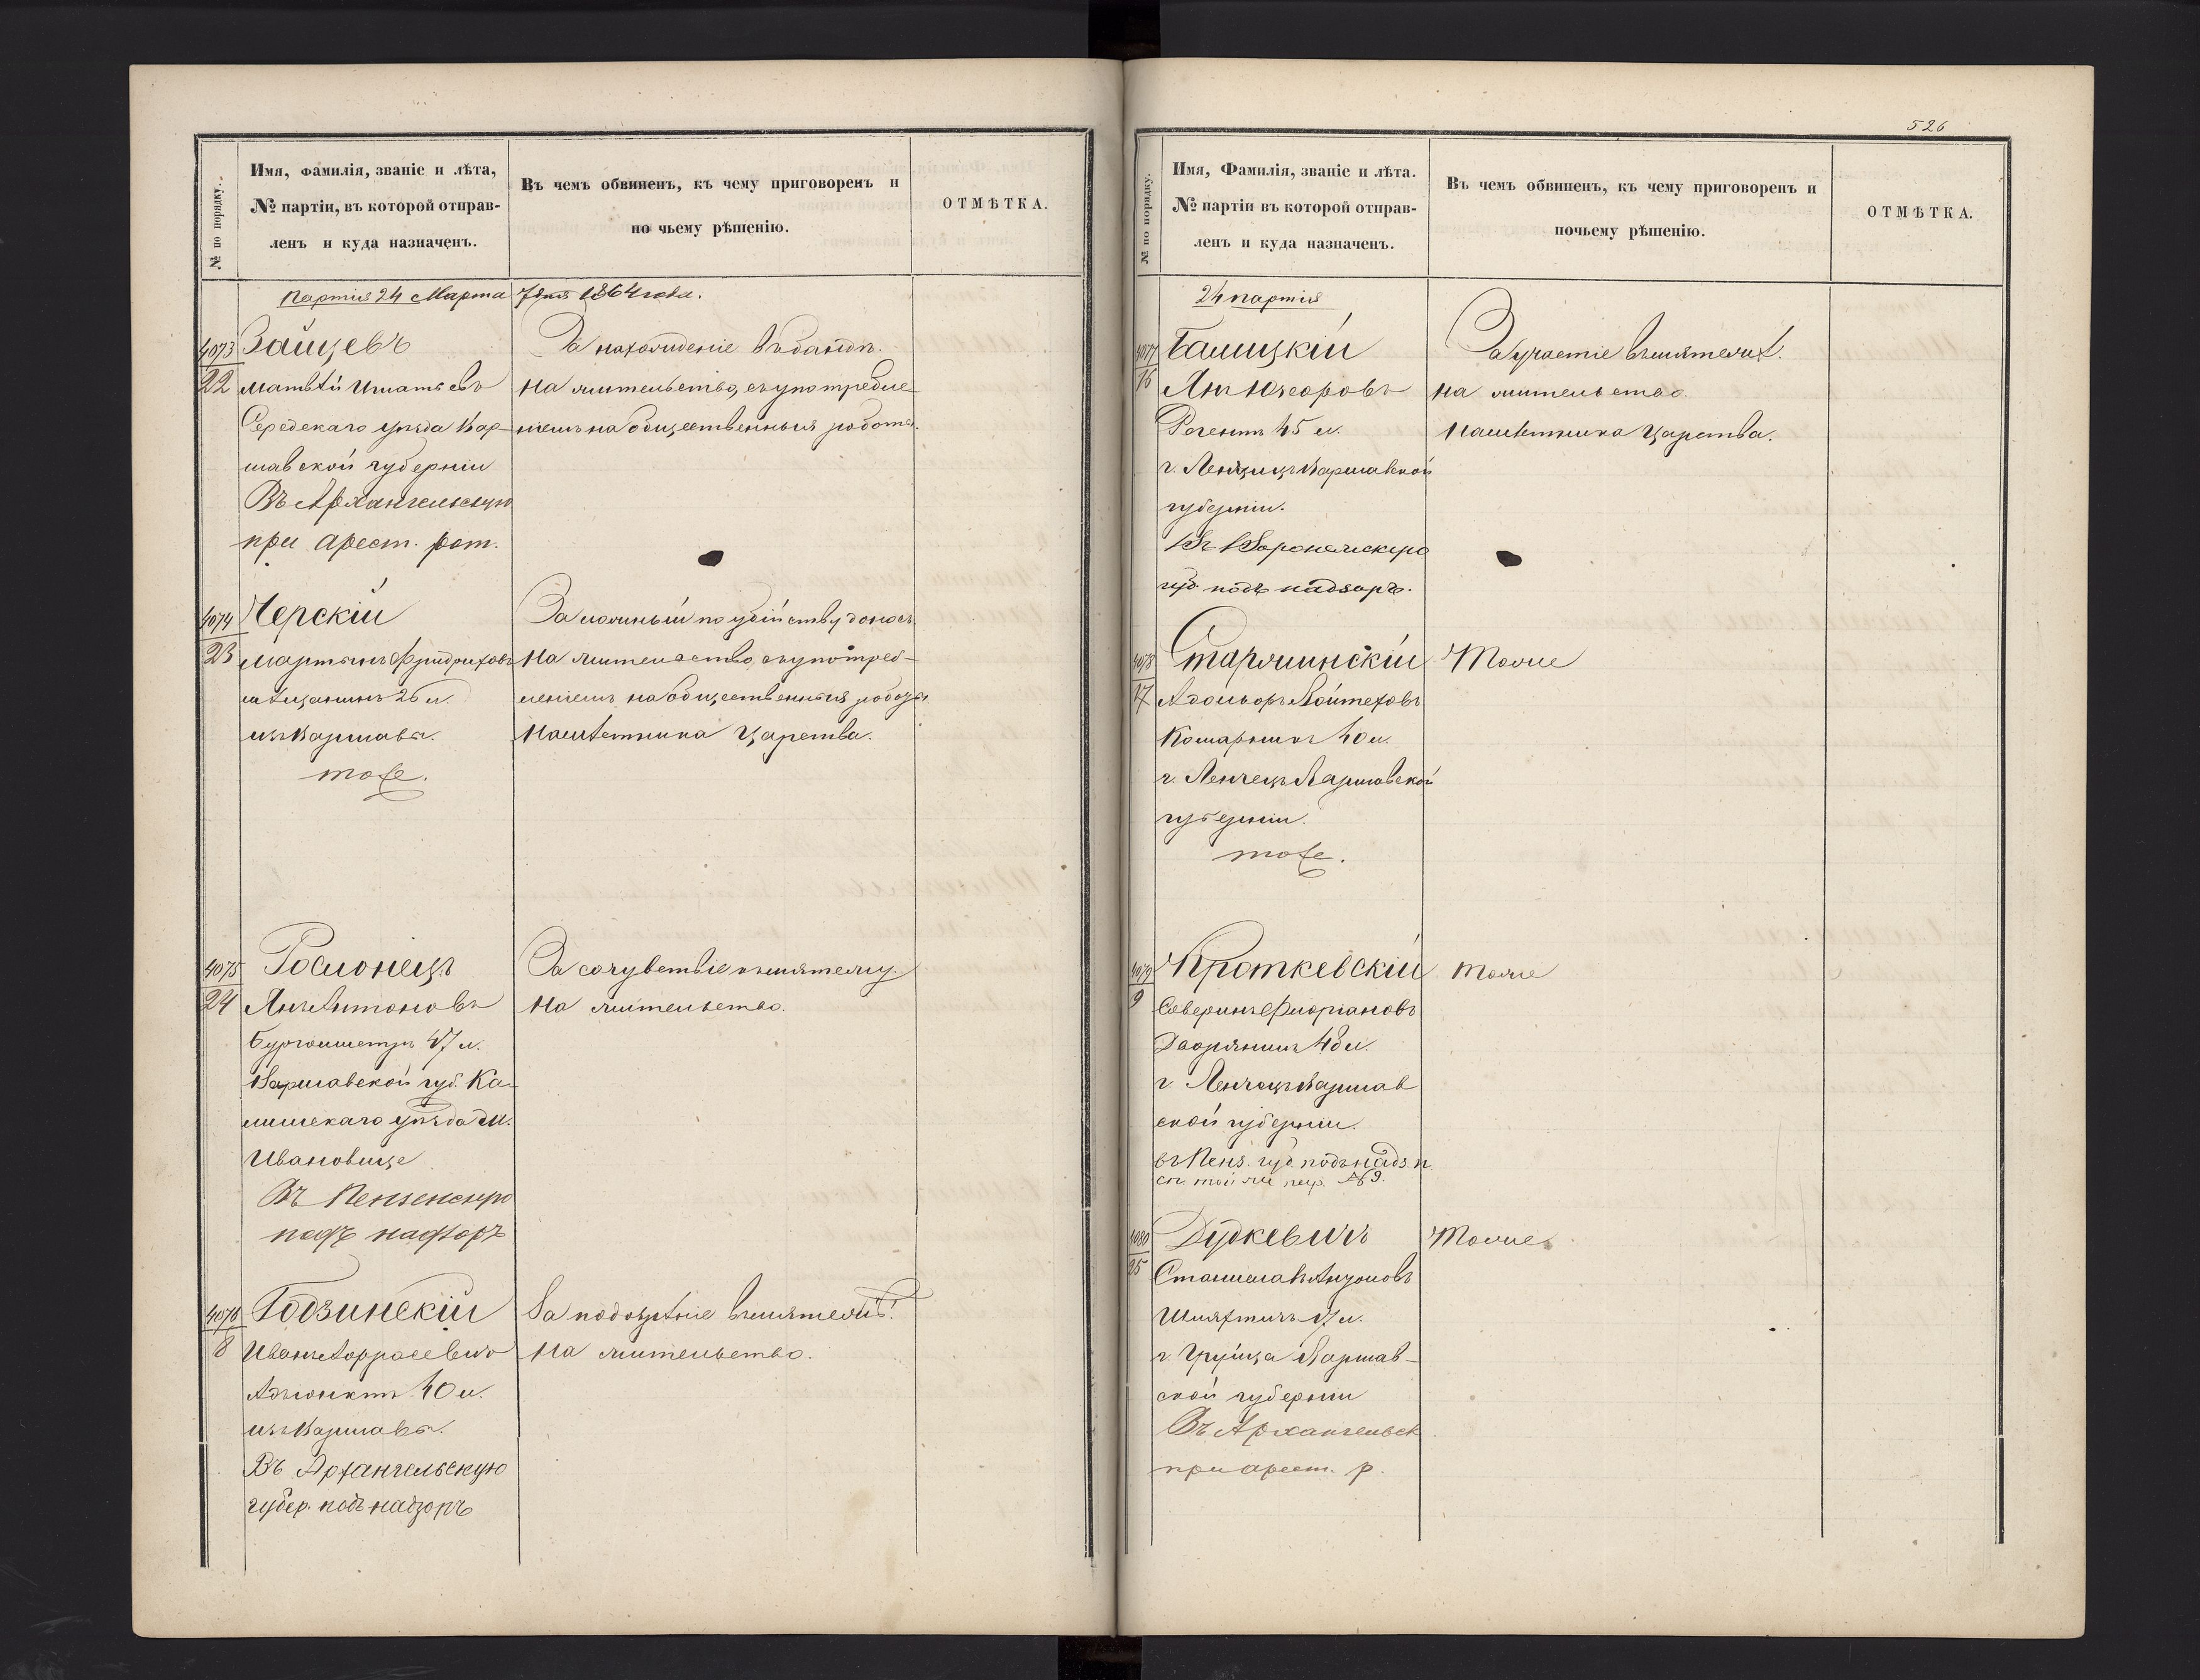 № по порядку.
Имя, фамилія, званіе и лѣта,
№ партіи, въ которой отправ-
ленъ и куда назначенъ.
Въ чемъ обвиненъ, къ чему приговоренъ и
по чьему рѣшенію.
ОТМѢТКА.
Партія 24 Марта 7 дня 1864 года.
4073
22
Зайцевъ
Матвѣй Игнатьевъ
уѣзда Вар-
шавской губерніи
Въ Архангельскую
при арест. рот.
За нахожденіе въ бандѣ.
На жительство, съ употребле-
ніемъ на общественныя работы.
4074
23
Черскій
Мартынъ Фридриховъ
мѣщанинъ 26 л.
изъ Варшавы.
тоже.
За ложный по убійству доносъ
На жительство, съ употреб-
леніемъ на общественныя работы
Намѣстника Царства.
4075
24
Рослонецъ
Янъ Антоновъ
Бургомистръ 47 л.
Варшавской губ. Ка-
лишскаго уѣзда м.
Ивановице
Въ Пензенскую
подъ надзоръ
За сочувствіе къ мятежу.
На жительство.
4076
8
Годзинскій
Иванъ
Адъюнктъ 40 л.
изъ Варшавы.
Въ Архангельскую
губер. подъ надзоръ
За подозрѣніе въ мятежѣ.
На жительство.
526
№ по порядку.
Имя, Фамилія, званіе и лѣта.
№ партіи въ которой отправ-
ленъ и куда назначенъ.
Въ чемъ обвиненъ, къ чему приговоренъ и
почьему рѣшенію.
ОТМѢТКА.
24 партія
4077
16
Галицкій
Янъ
Регентъ 45 л.
г. Ленчицъ Варшавской
губерніи.
Въ Воронежскую
губ. подъ надзоръ.
За участіе въ мятежѣ.
На жительство.
Намѣстника Царства.
4078
17
Старжинскій
Адольфъ Войтеховъ
40 л.
г. Ленчецъ Варшавской
губерніи.
тоже.
Тоже
4079
9
Кроткевскій
Северинъ Флоріановъ
Дворянинъ 48 л.
г. Ленчецъ Варшав
ской губерніи.
въ Пенз. губ. подъ надз. п.
№ 9.
тоже
4080
25
Дудкевичъ
Станиславъ Антоновъ
Шляхтичъ
г. Груйца Варшав-
ской губерніи
Въ Архангельск
при арест. р.
Тоже